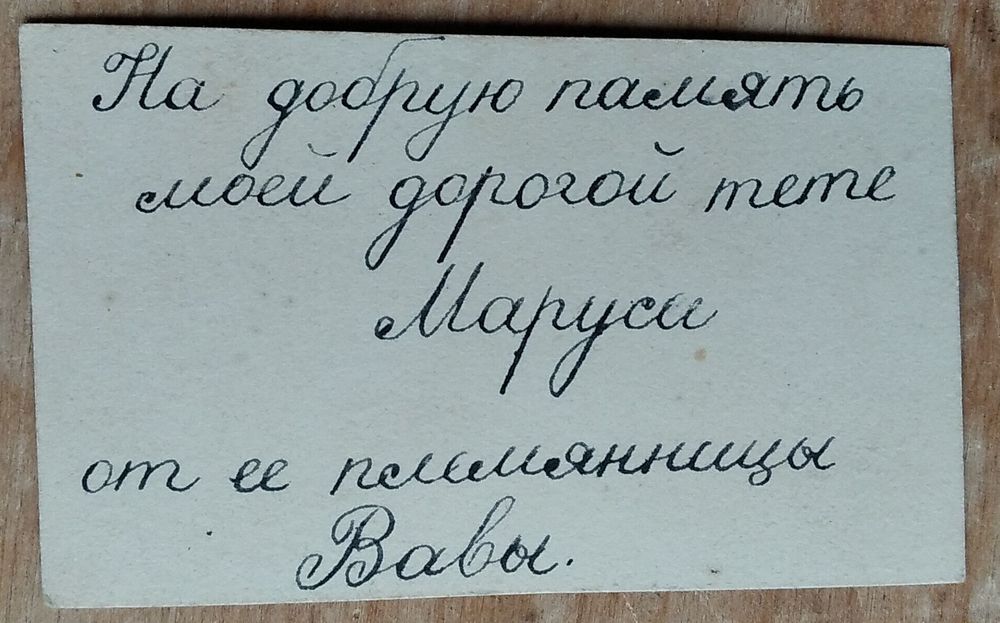 На добрую память
моей дорогой тете
Маруси
от ее племянницы
Вавы.